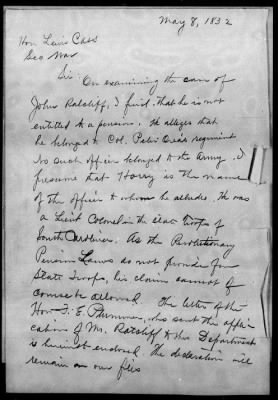 May 8, 1832
Hon Lewis Cass
Sec War
Sir: On examining the case of
John Ratcliff, I find that he is not
entitled to a pension. He alleges that
he belonged to Col. Peter regiment
No such officer belonged to the Army. I
presume that Horry is the name
of the officer to whom he alludes. He was
a Lieut Colonel in the State troops of
South Carolina. As the Revolutionary
Pension Laws do not provide for
State Troops, his claim cannot of
course be allowed. The letter of the
Hon. F. E. Plummer, who sent the appli
cation of Mr. Ratcliff to the Department
is herewith enclosed. The declaration will
remain on our files